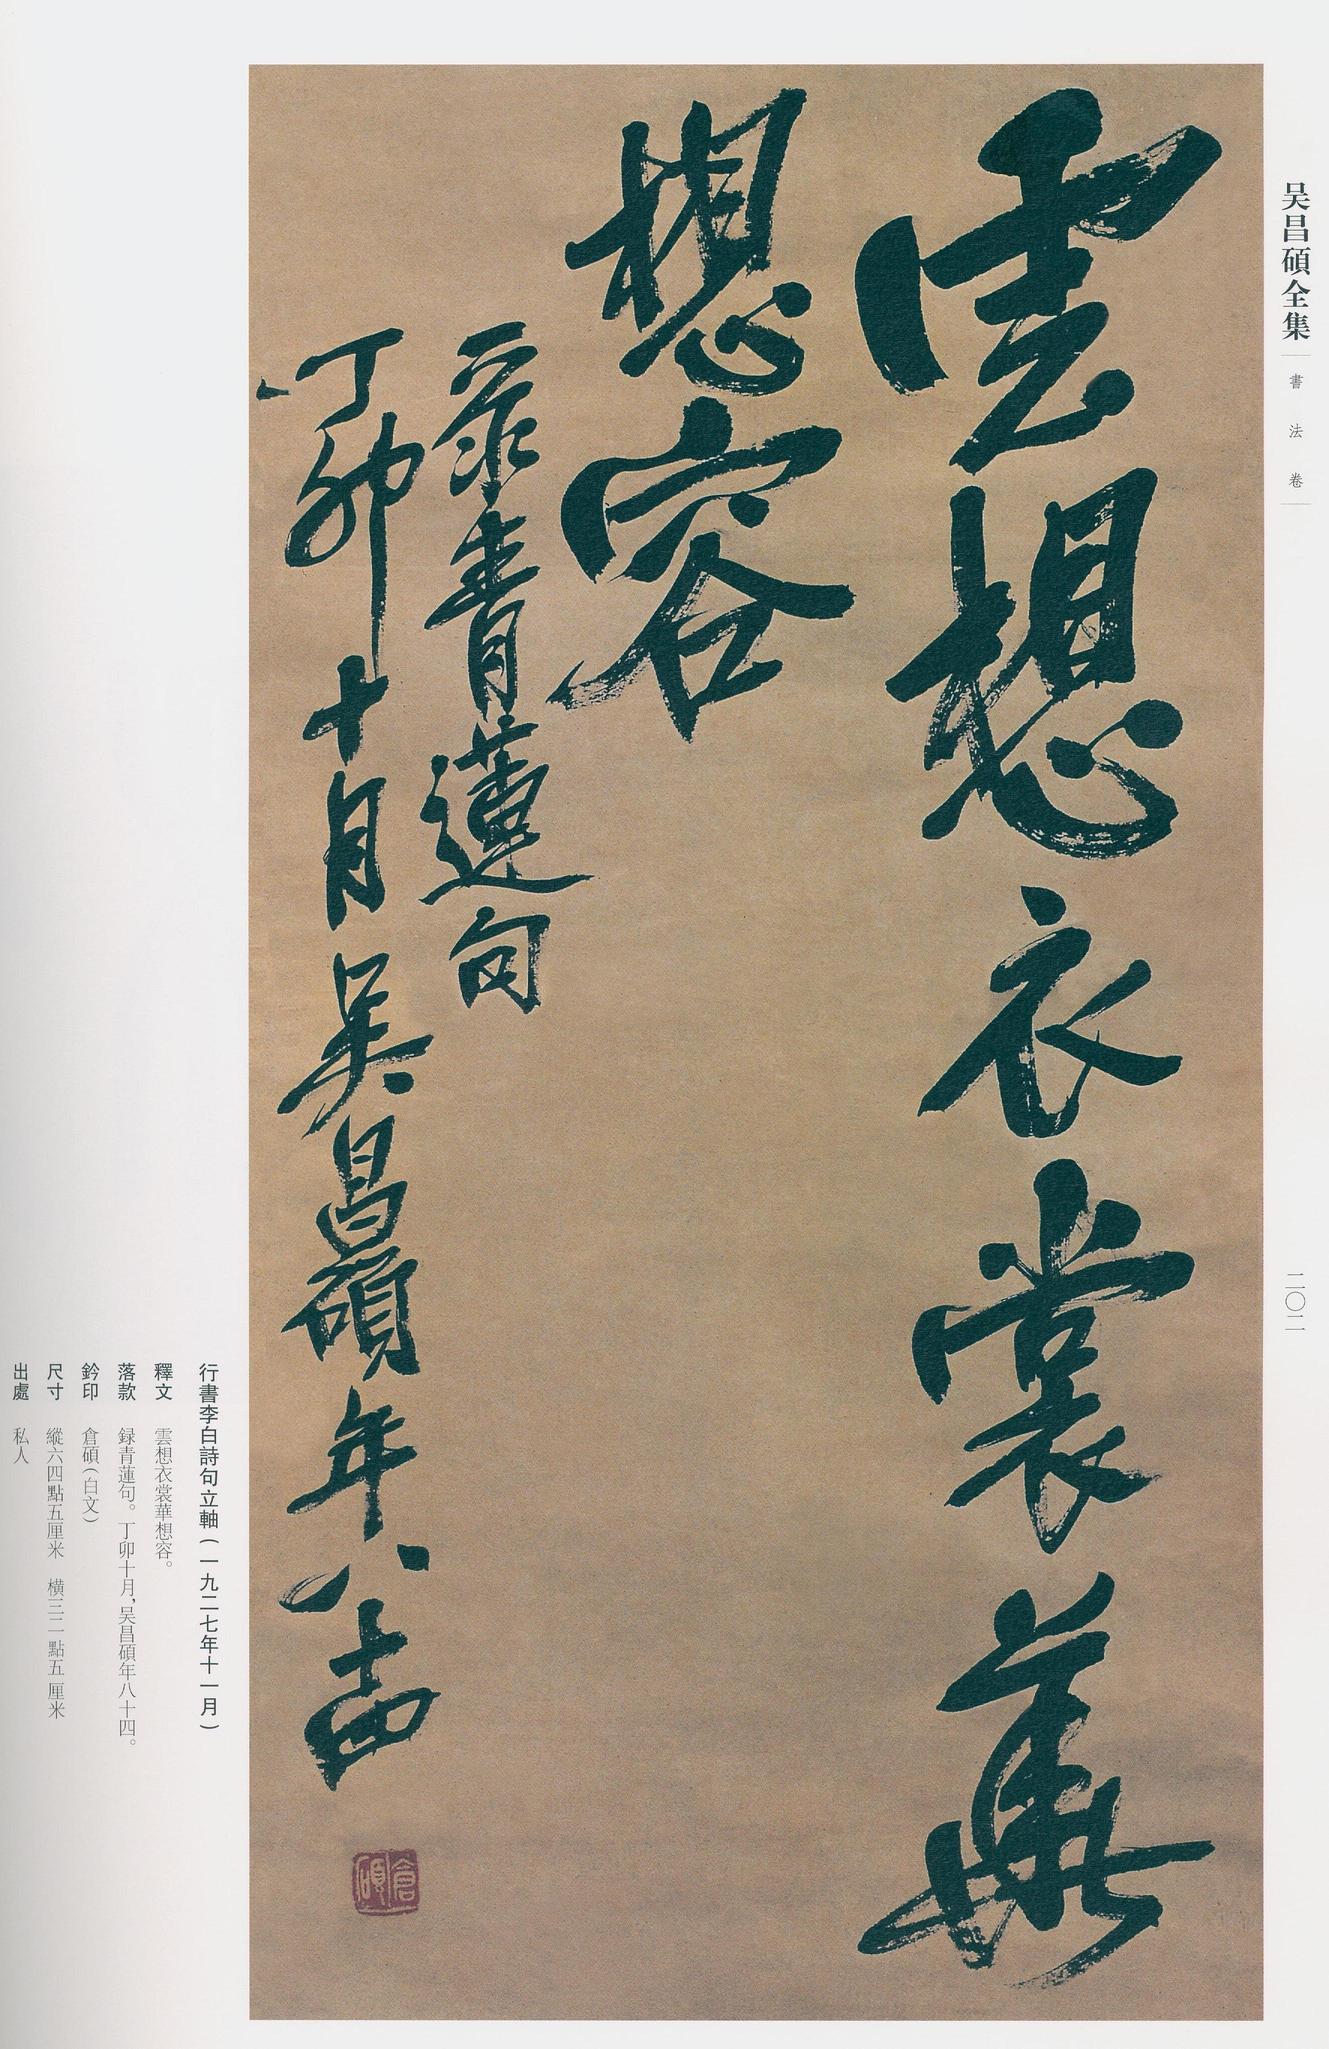 吴昌碩全集
書法卷
二〇二
雲想衣裳華
想容
录青蓮句
丁卯十月吴昌碩年八十四
倉碩
行書李白詩句立軸（一九二七年十一月）
釋文　雲想衣裳華想容。
落款　録青蓮句。丁卯十月，吴昌碩年八十四。
鈐印　倉碩（白文）
尺寸　縱六四點五厘米　橫三二點五厘米
出處　私人